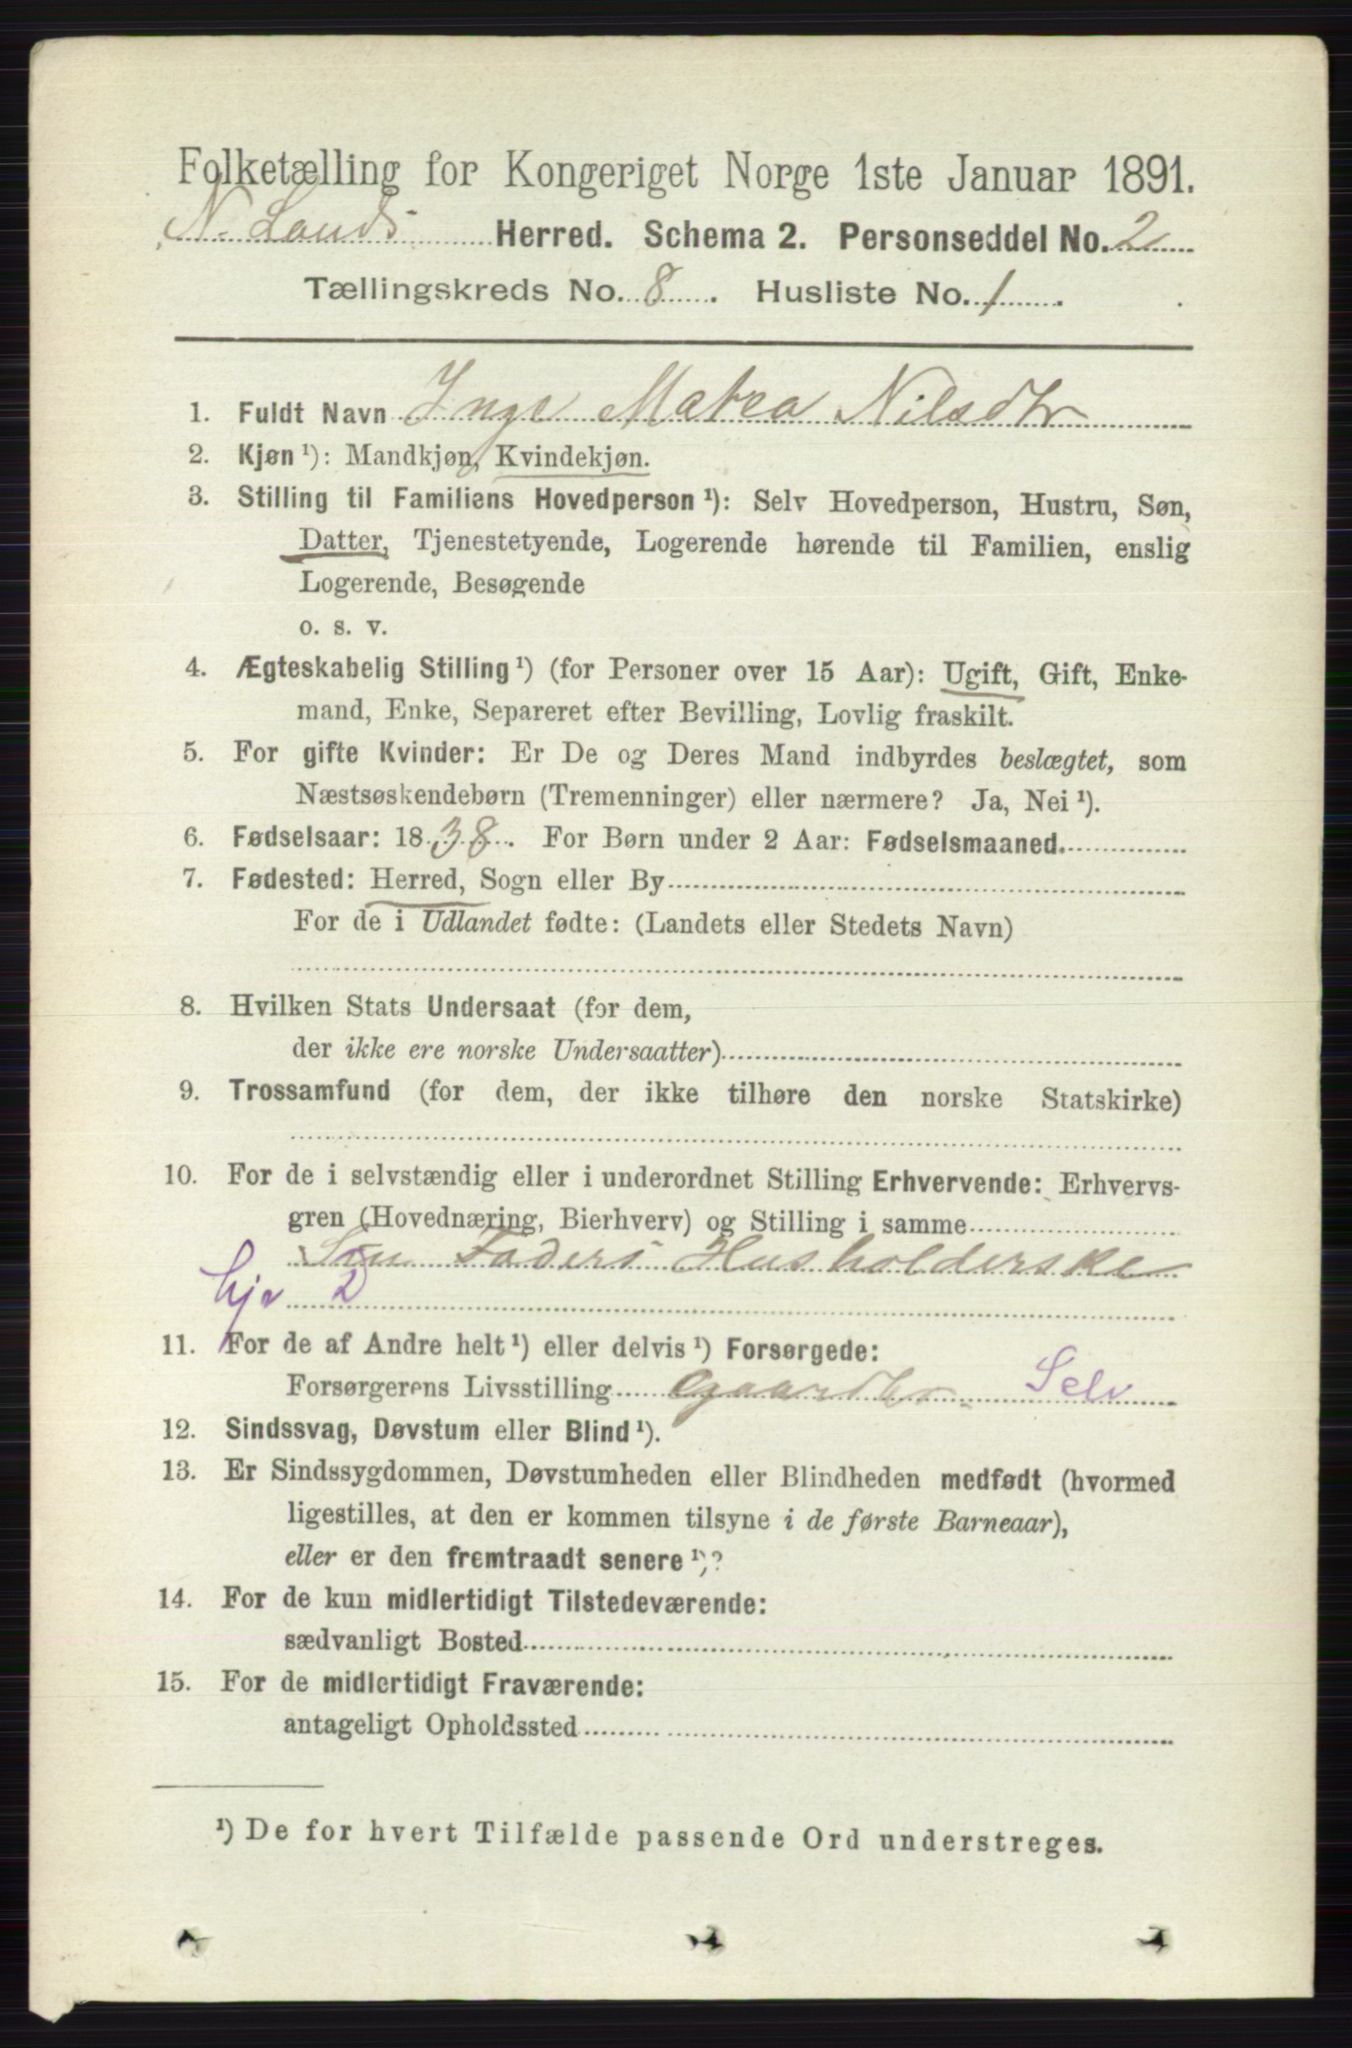 Folketælling for Kongeriget Norge 1ste Januar 1891.
N. Lands Herred. Schema 2. Personseddel No. 2
Tællingskreds No. 8. Husliste No. 1.
1. Fuldt Navn Inge Matea Nilsdtr
2. Kjøn ¹): Mandkjøn, Kvindekjøn.
3. Stilling til Familiens Hovedperson ¹): Selv Hovedperson, Hustru, Søn,
Datter, Tjenestetyende, Logerende hørende til Familien, enslig
Logerende, Besøgende
o. s. v.
4. Ægteskabelig Stilling ¹) (for Personer over 15 Aar): Ugift, Gift, Enke-
mand, Enke, Separeret efter Bevilling, Lovlig fraskilt.
5. For gifte Kvinder: Er De og Deres Mand indbyrdes beslægtet, som
Næstsøskendebørn (Tremenninger) eller nærmere? Ja, Nei ¹).
6. Fødselsaar: 1838. For Børn under 2 Aar: Fødselsmaaned
7. Fødested: Herred, Sogn eller By
For de i Udlandet fødte: (Landets eller Stedets Navn)
8. Hvilken Stats Undersaat (for dem,
der ikke ere norske Undersaatter)
9. Trossamfund (for dem, der ikke tilhøre den norske Statskirke)
10. For de i selvstændig eller i underordnet Stilling Erhvervende: Erhvervs-
gren (Hovednæring, Bierhverv) og Stilling i samme
Sin Faders Husholderske
hje D
11. For de af Andre helt ¹) eller delvis ¹) Forsørgede:
Forsørgerens Livsstilling Gaardbr. Selv
12. Sindssvag, Døvstum eller Blind ¹).
13. Er Sindssygdommen, Døvstumheden eller Blindheden medfødt (hvormed
ligestilles, at den er kommen tilsyne i de første Barneaar),
eller er den fremtraadt senere ¹)?
14. For de kun midlertidigt Tilstedeværende:
sædvanligt Bosted
15. For de midlertidigt Fraværende:
antageligt Opholdssted
¹) De for hvert Tilfælde passende Ord understreges.